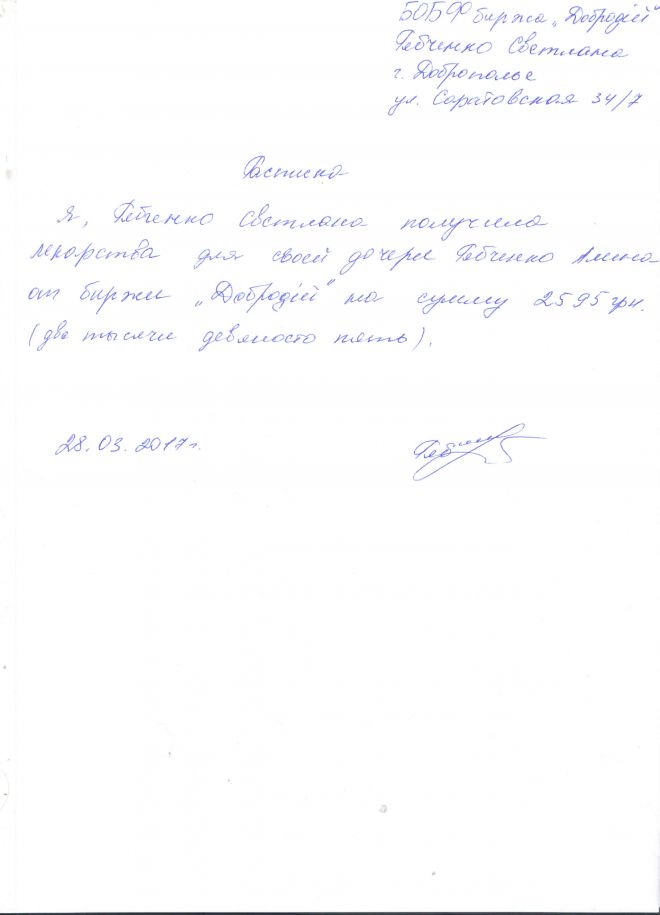 БОБФ биржа „Добродій"
Гебченко Светлана
г. Доброполье
ул. Саратовская 34/7
Расписка
Я, Гебченко Светлана получила
лекарства для своей дочери Гебченко Алина
от биржи „Добродій" на сумму 2595 грн.
(две тысячи девяносто пять).
28.03.2017г.